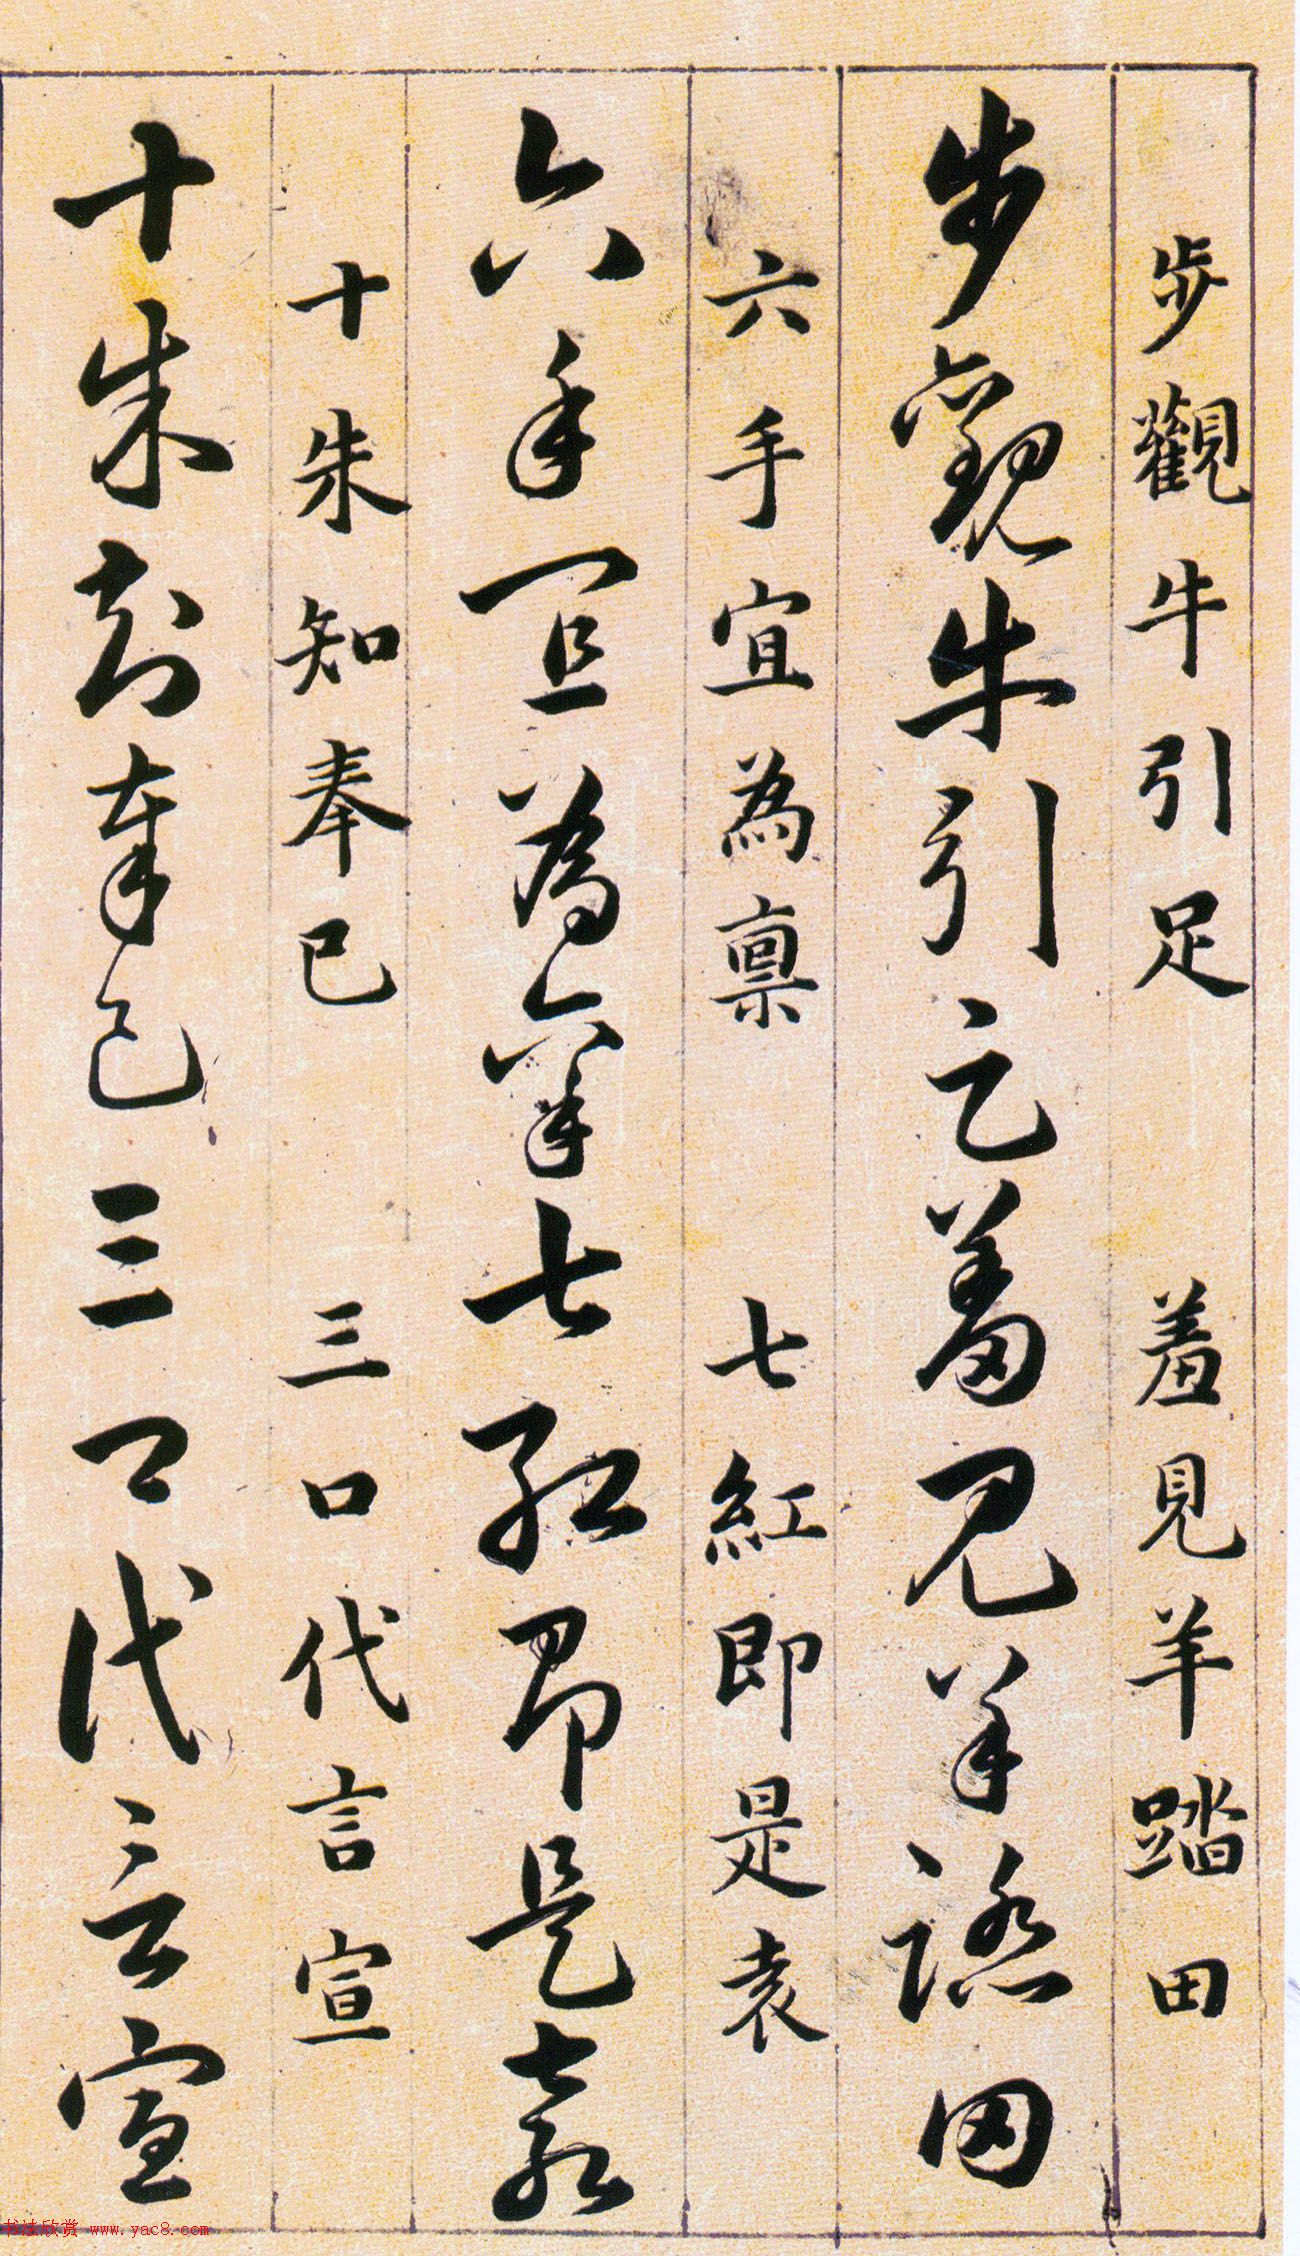 步觀牛引足 羞見羊踏田
步觀牛引足羞見羊踏田
六手宜為禀 七紅即是袁
六手宜為禀七紅即是袁
十朱知奉已 三口代言宣
十朱知奉已三口代言宣
书法欣赏 www.yac8.com